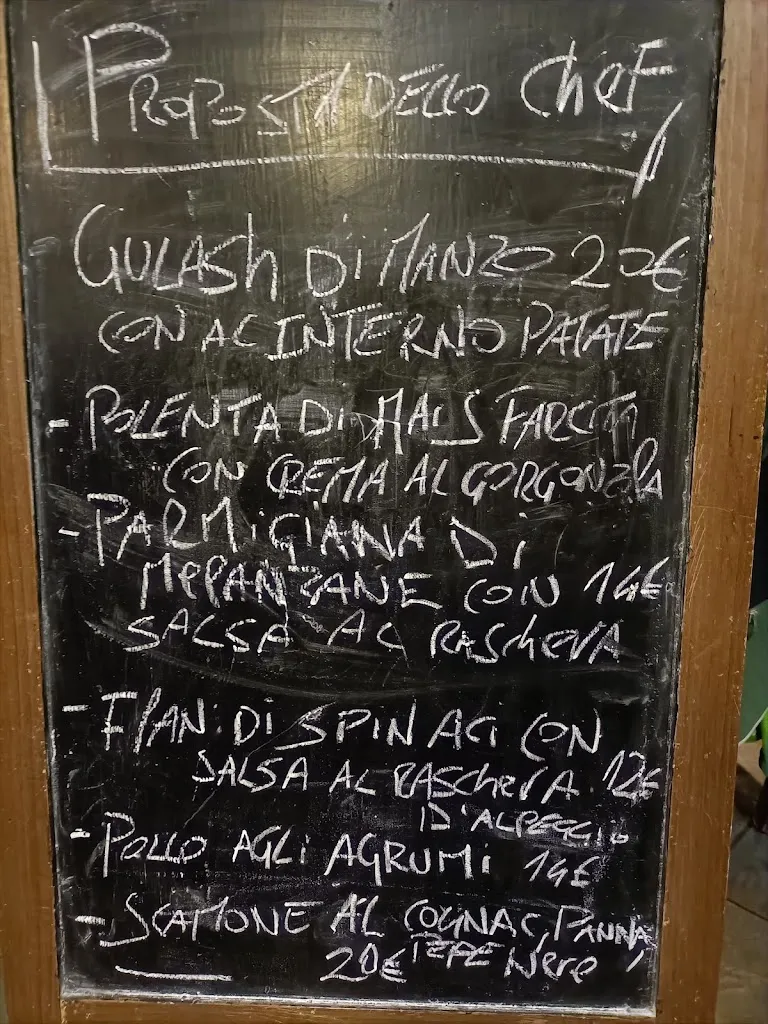 PROPOSTA DELLO CHEF
GULASH DI MANZO 20€
CON AL INTERNO PATATE
- POLENTA DI MAIS FARCITA
CON CREMA AL GORGONZOLA
- PARMIGIANA DI
MELANZANE CON 14€
SALSA AL RASCHERA
- FLAN DI SPINACI CON
SALSA AL RASCHERA 12€
D'ALPEGGIO
- POLLO AGLI AGRUMI 14€
- SCAMONE AL COGNAC, PANNA,
20€ PEPE NERO